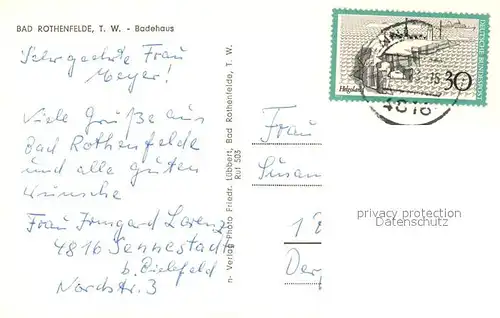 BAD ROTHENFELDE, T. W. - Badehaus
Sehr geehrte Frau
Meyer!
Viele Grüße aus
Bad Rothenfelde
und alle guten
Wünsche
Frau Irmgard Lorenz
4816 Sennestadt
b. Bielefeld
Nordstr. 3
n- Verlag Photo Friedr. Lübbert, Bad Rothenfelde, T. W.
Ruf 503
DEUTSCHE BUNDESPOST
Helgoland
30
4816
Frau
Susan
1
Der
privacy protection
Datenschutz